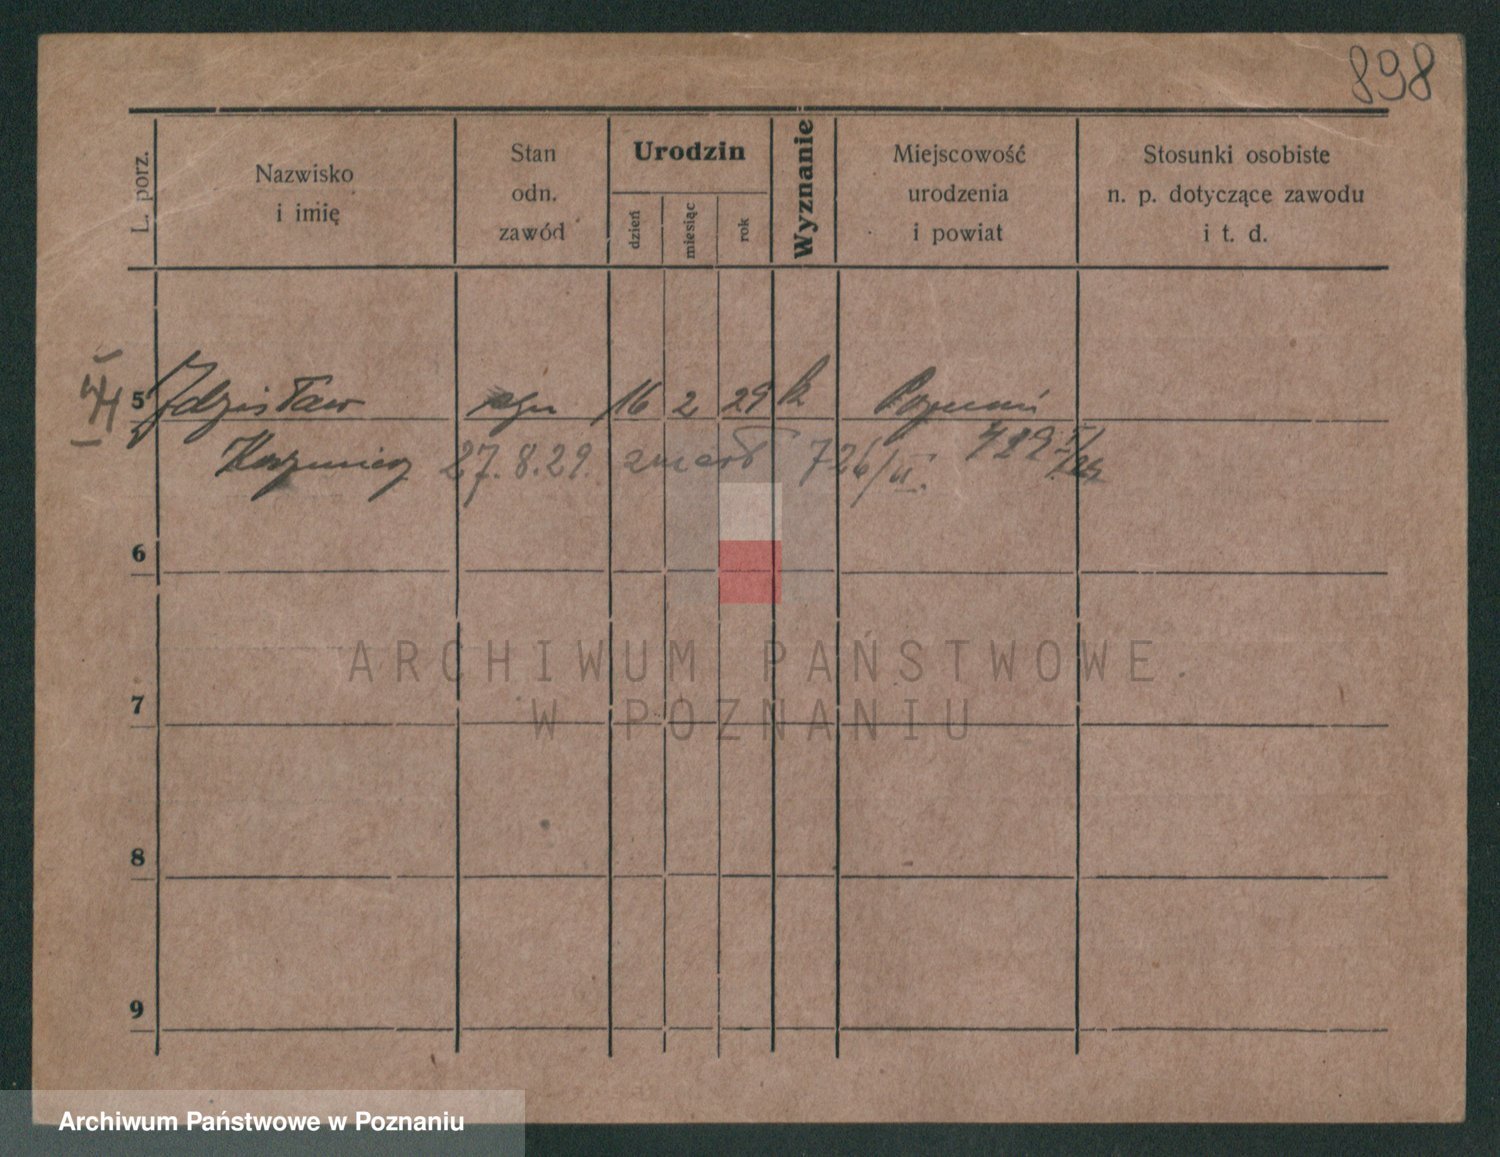 898
L. porz.
Nazwisko
i imię
Stan
odn.
zawód
Urodzin
dzień
miesiąc
rok
Wyznanie
Miejscowość
urodzenia
i powiat
Stosunki osobiste
n. p. dotyczące zawodu
i t. d.
5 Zdzisław syn 16 2 29 k Poznań
Kazimierz 27.8.29. zmarł 726/II.
6
7
8
9
ARCHIWUM PAŃSTWOWE
W POZNANIU
Archiwum Państwowe w Poznaniu